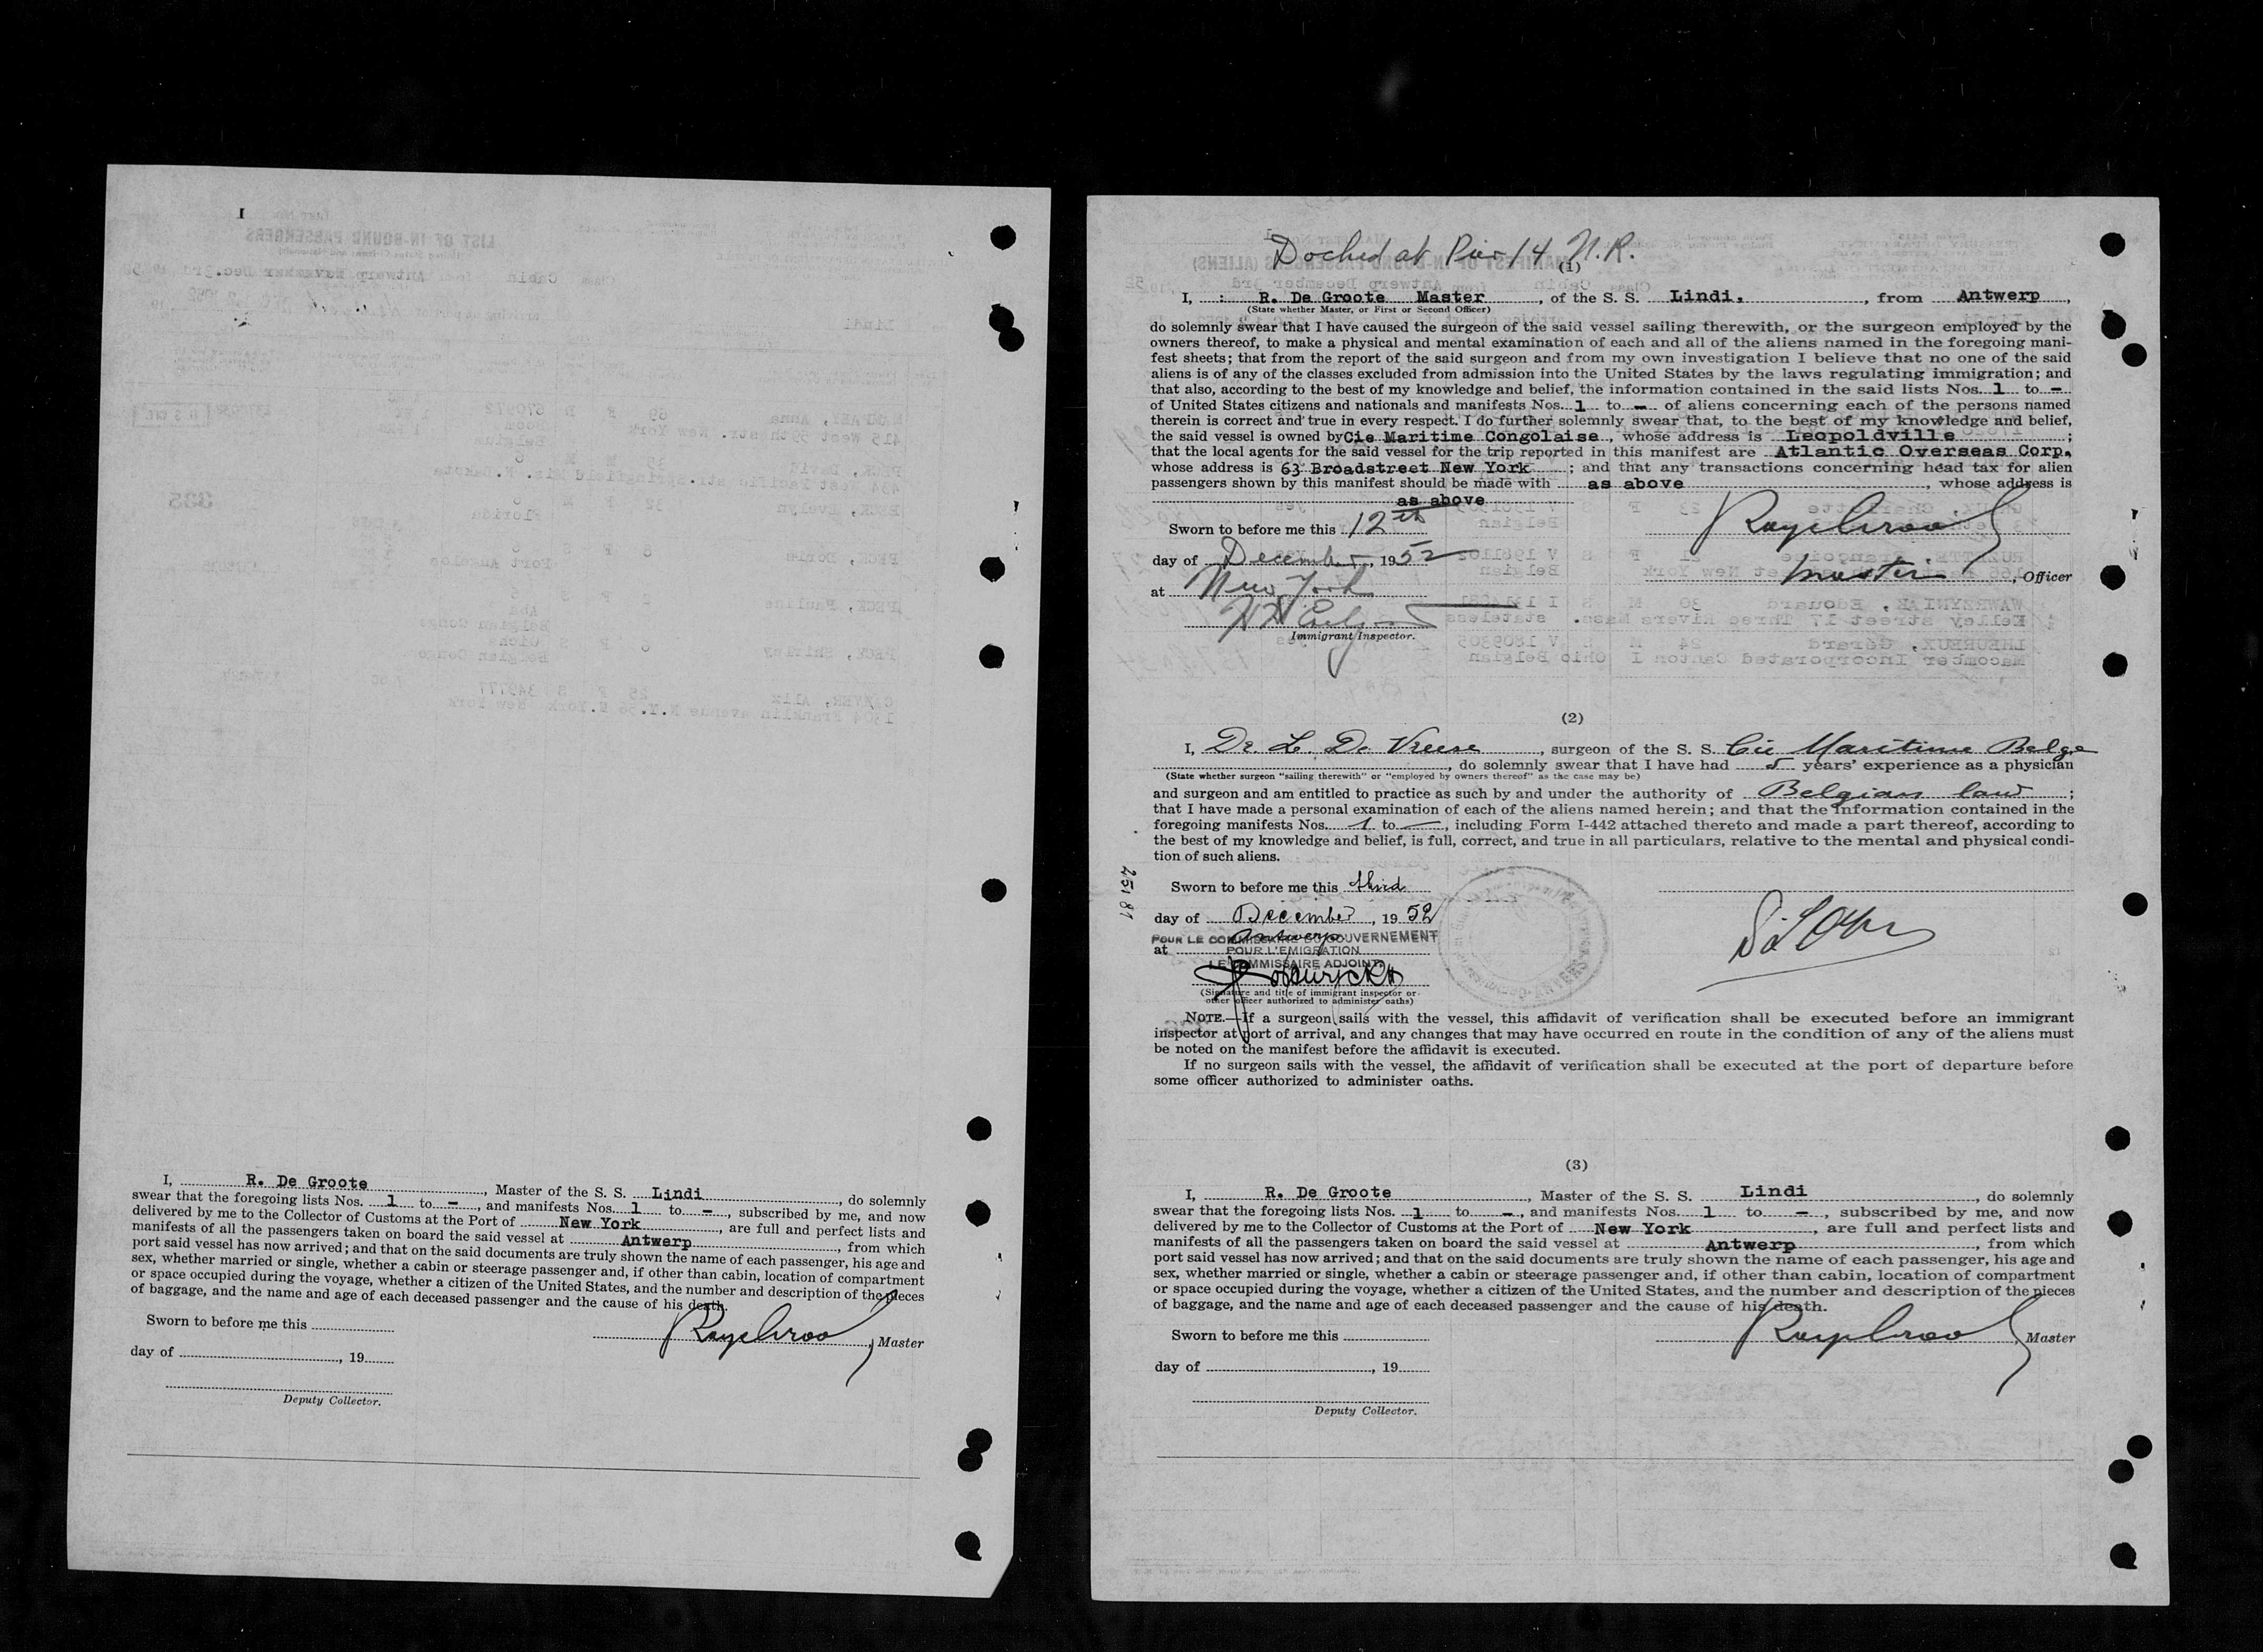 I
I, R. De Groote, Master of the S. S. Lindi, do solemnly
swear that the foregoing lists Nos. 1 to -, and manifests Nos. 1 to -, subscribed by me, and now
delivered by me to the Collector of Customs at the Port of New York, are full and perfect lists and
manifests of all the passengers taken on board the said vessel at Antwerp, from which
port said vessel has now arrived; and that on the said documents are truly shown the name of each passenger, his age and
sex, whether married or single, whether a cabin or steerage passenger and, if other than cabin, location of compartment
or space occupied during the voyage, whether a citizen of the United States, and the number and description of the pieces
of baggage, and the name and age of each deceased passenger and the cause of his death.
Sworn to before me this
, Master
day of , 19
Deputy Collector.
Docked at Pier 14 N.R.
(1)
I, : R. De Groote Master, of the S. S. Lindi, , from Antwerp,
(State whether Master, or First or Second Officer)
do solemnly swear that I have caused the surgeon of the said vessel sailing therewith, or the surgeon employed by the
owners thereof, to make a physical and mental examination of each and all of the aliens named in the foregoing mani-
fest sheets; that from the report of the said surgeon and from my own investigation I believe that no one of the said
aliens is of any of the classes excluded from admission into the United States by the laws regulating immigration; and
that also, according to the best of my knowledge and belief, the information contained in the said lists Nos. 1 to -
of United States citizens and nationals and manifests Nos. 1 to - of aliens concerning each of the persons named
therein is correct and true in every respect. I do further solemnly swear that, to the best of my knowledge and belief,
the said vessel is owned by Cie Maritime Congolaise, whose address is Leopoldville;
that the local agents for the said vessel for the trip reported in this manifest are Atlantic Overseas Corp.
whose address is 63 Broadstreet New York; and that any transactions concerning head tax for alien
passengers shown by this manifest should be made with as above, whose address is
as above
Sworn to before me this 12th
day of December, 1952
master, Officer
at New York
Immigrant Inspector.
(2)
I, Dr. L. De Vreese, surgeon of the S. S. Cie Maritime Belge
, do solemnly swear that I have had 5 years' experience as a physician
(State whether surgeon "sailing therewith" or "employed by owners thereof" as the case may be)
and surgeon and am entitled to practice as such by and under the authority of Belgian law;
that I have made a personal examination of each of the aliens named herein; and that the information contained in the
foregoing manifests Nos. 1 to —, including Form I-442 attached thereto and made a part thereof, according to
the best of my knowledge and belief, is full, correct, and true in all particulars, relative to the mental and physical condi-
tion of such aliens.
25181
Sworn to before me this third
day of December, 1952
POUR LE COMMISSAIRE DU GOUVERNEMENT
at Antwerp
POUR L'EMIGRATION
LE COMMISSAIRE ADJOINT
(Signature and title of immigrant inspector or
other officer authorized to administer oaths)
NOTE.—If a surgeon sails with the vessel, this affidavit of verification shall be executed before an immigrant
inspector at port of arrival, and any changes that may have occurred en route in the condition of any of the aliens must
be noted on the manifest before the affidavit is executed.
If no surgeon sails with the vessel, the affidavit of verification shall be executed at the port of departure before
some officer authorized to administer oaths.
(3)
I, R. De Groote, Master of the S. S. Lindi, do solemnly
swear that the foregoing lists Nos. 1 to -, and manifests Nos. 1 to -, subscribed by me, and now
delivered by me to the Collector of Customs at the Port of New York, are full and perfect lists and
manifests of all the passengers taken on board the said vessel at Antwerp, from which
port said vessel has now arrived; and that on the said documents are truly shown the name of each passenger, his age and
sex, whether married or single, whether a cabin or steerage passenger and, if other than cabin, location of compartment
or space occupied during the voyage, whether a citizen of the United States, and the number and description of the pieces
of baggage, and the name and age of each deceased passenger and the cause of his death.
Sworn to before me this
, Master
day of , 19
Deputy Collector.